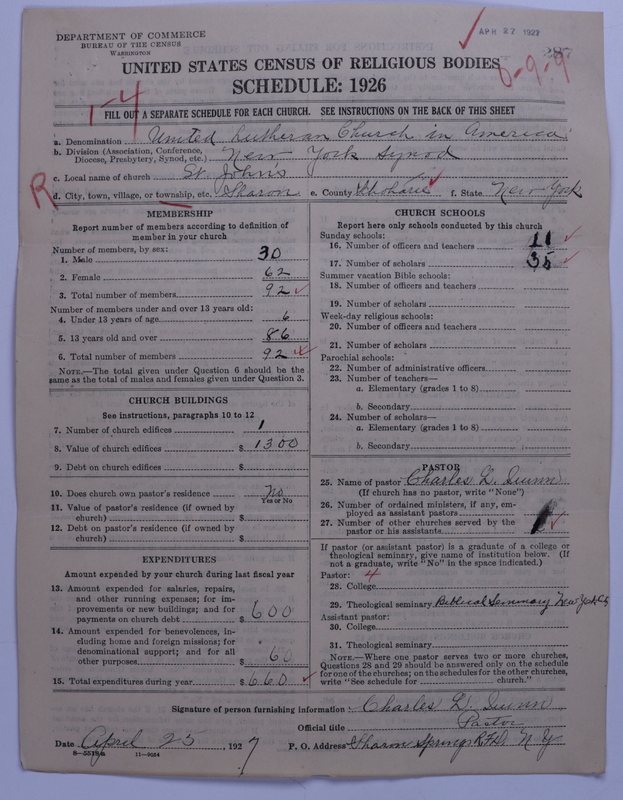 DEPARTMENT OF COMMERCE
BUREAU OF THE CENSUS
WASHINGTON
APR 27 1927
287
UNITED STATES CENSUS OF RELIGIOUS BODIES
SCHEDULE: 1926
0-9-9
1-4
FILL OUT A SEPARATE SCHEDULE FOR EACH CHURCH. SEE INSTRUCTIONS ON THE BACK OF THIS SHEET
a. Denomination United Lutheran Church in America
b. Division (Association, Conference, Diocese, Presbytery, Synod, etc.) New York Synod
c. Local name of church St. John's
R
d. City, town, village, or township, etc. Sharon e. County Schoharie f. State New York
MEMBERSHIP
Report number of members according to definition of
member in your church
Number of members, by sex:
1. Male 30
2. Female 62
3. Total number of members 92
Number of members under and over 13 years old:
4. Under 13 years of age 6
5. 13 years old and over 86
6. Total number of members 92
NOTE.—The total given under Question 6 should be the
same as the total of males and females given under Question 3.
CHURCH BUILDINGS
See instructions, paragraphs 10 to 12
7. Number of church edifices 1
8. Value of church edifices $1300
9. Debt on church edifices $
10. Does church own pastor's residence No
Yes or No
11. Value of pastor's residence (if owned by
church) $
12. Debt on pastor's residence (if owned by
church) $
EXPENDITURES
Amount expended by your church during last fiscal year
13. Amount expended for salaries, repairs,
and other running expenses; for im-
provements or new buildings; and for
payments on church debt $600
14. Amount expended for benevolences, in-
cluding home and foreign missions; for
denominational support; and for all
other purposes 60
15. Total expenditures during year $660
CHURCH SCHOOLS
Report here only schools conducted by this church
Sunday schools:
16. Number of officers and teachers 11
17. Number of scholars 35
Summer vacation Bible schools:
18. Number of officers and teachers
19. Number of scholars
Week-day religious schools:
20. Number of officers and teachers
21. Number of scholars
Parochial schools:
22. Number of administrative officers
23. Number of teachers—
a. Elementary (grades 1 to 8)
b. Secondary
24. Number of scholars—
a. Elementary (grades 1 to 8)
b. Secondary
PASTOR
25. Name of pastor Charles L. Quinn
(If church has no pastor, write "None")
26. Number of ordained ministers, if any, em-
ployed as assistant pastors
27. Number of other churches served by the
pastor or his assistants
If pastor (or assistant pastor) is a graduate of a college or
theological seminary, give name of institution below. (If
not a graduate, write "No" in the space indicated.)
Pastor: 4
28. College
29. Theological seminary Biblical Seminary New York City
Assistant pastor:
30. College
31. Theological seminary
NOTE.—Where one pastor serves two or more churches,
Questions 28 and 29 should be answered only on the schedule
for one of the churches; on the schedules for the other churches,
write "See schedule for church."
Signature of person furnishing information Charles L. Quinn
Official title Pastor
Date April 25 1927 P. O. Address Sharon Springs R.F.D. N.Y.
8-5518a 11-9364